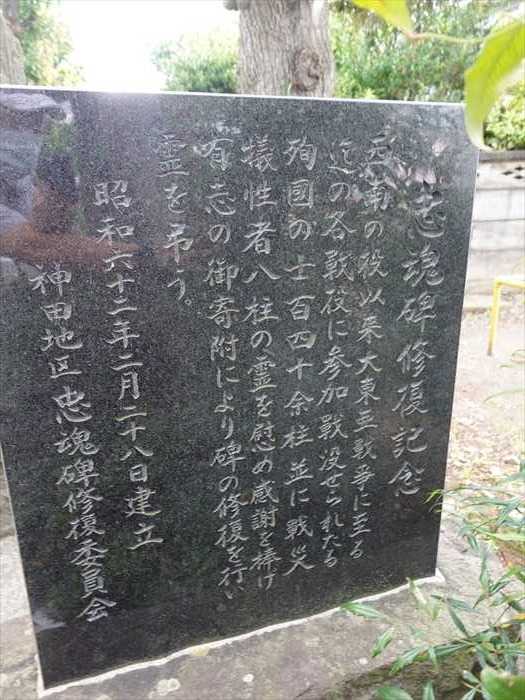 忠魂碑修復記念
西南の役以来大東亜戦争に至る
迄の各戦役に参加戦没せられたる
殉國の士百四十余柱並に戦災
犠性者八柱の霊を慰め感謝を捧げ
有志の御寄附により碑の修復を行い
霊を弔う。
昭和六十二年二月二十八日建立
神田地区忠魂碑修復委員会